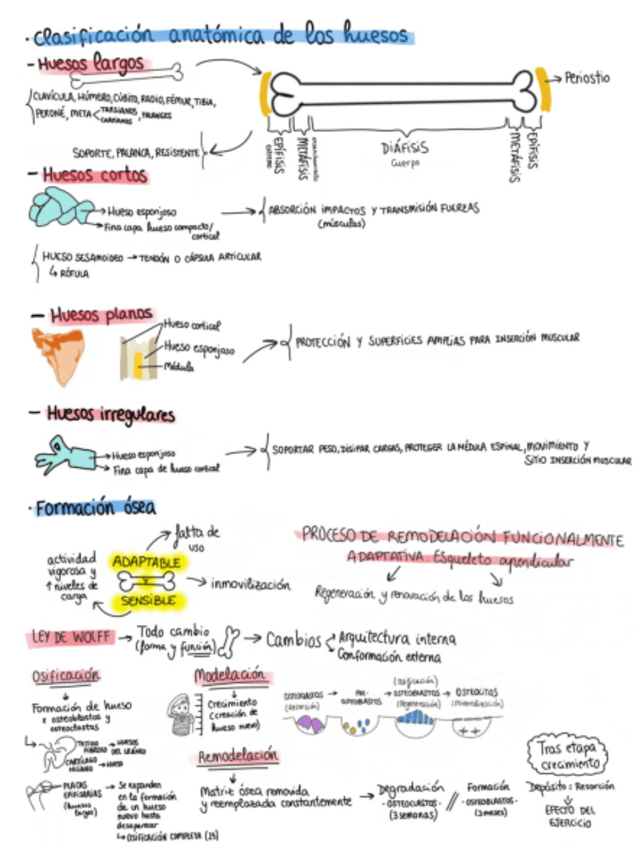 · Clasificación anatómica de los huesos
- Huesos largos
CLAVÍCULA, HÚMERO, CÚBITO, RADIO, FÉMUR, TIBIA,
PERONÉ, META < TARSIANOS CARPIANOS, FALANGES
SOPORTE, PALANCA, RESISTENTE
→ Periostio
EPÍFISIS
METÁFISIS
DIÁFISIS
Cuerpo
METÁFISIS
EPÍFISIS
- Huesos cortos
→ Hueso esponjoso
→ Fina capa hueso compacto/
cortical
→ ABSORCIÓN IMPACTOS Y TRANSMISIÓN FUERZAS
(músculos)
HUESO SESAMOIDEO → TENDÓN O CÁPSULA ARTICULAR
↳ RÓTULA
- Huesos planos
Hueso cortical
Hueso esponjoso
Médula
→ PROTECCIÓN Y SUPERFICIES AMPLIAS PARA INSERCIÓN MUSCULAR
- Huesos irregulares
→ Hueso esponjoso
→ Fina capa de hueso cortical
→ SOPORTAR PESO, DISIPAR CARGAS, PROTEGER LA MÉDULA ESPINAL, MOVIMIENTO Y
SITIO INSERCIÓN MUSCULAR
· Formación ósea
falta de
uso
actividad
vigorosa y
↑ niveles de
carga
ADAPTABLE
Y
SENSIBLE
→ inmovilización
PROCESO DE REMODELACIÓN FUNCIONALMENTE
ADAPTATIVA Esqueleto apendicular
Regeneración y renovación de los huesos
LEY DE WOLFF → Todo cambio
(forma y función)
→ Cambios < Arquitectura interna
Conformación externa
Osificación
Formación de hueso
x osteoblastos y
osteoclastos
TEJIDO
FIBROSO → HUESOS
DEL CRÁNEO
CARTÍLAGO
HIALINO → HUESO
PLACAS
EPIFISARIAS
(huesos
largos)
→ Se expanden
en la formación
de un hueso
nuevo hasta
desaparecer
↳ OSIFICACIÓN COMPLETA (25)
Modelación
Crecimiento
(creación de
hueso nuevo)
OSTEOCLASTOS
(Resorción)
→ PRE-
OSTEOBLASTOS
(Osificación)
→ OSTEOBLASTOS
(Regeneración)
→ OSTEOCITOS
(Mineralización)
Remodelación
Matriz ósea removida
y reemplazada constantemente
→ Degradación
- OSTEOCLASTOS -
(3 semanas)
//
Formación
- OSTEOBLASTOS -
(3 meses)
Tras etapa
crecimiento
Depósito = Resorción
EFECTO DEL
EJERCICIO